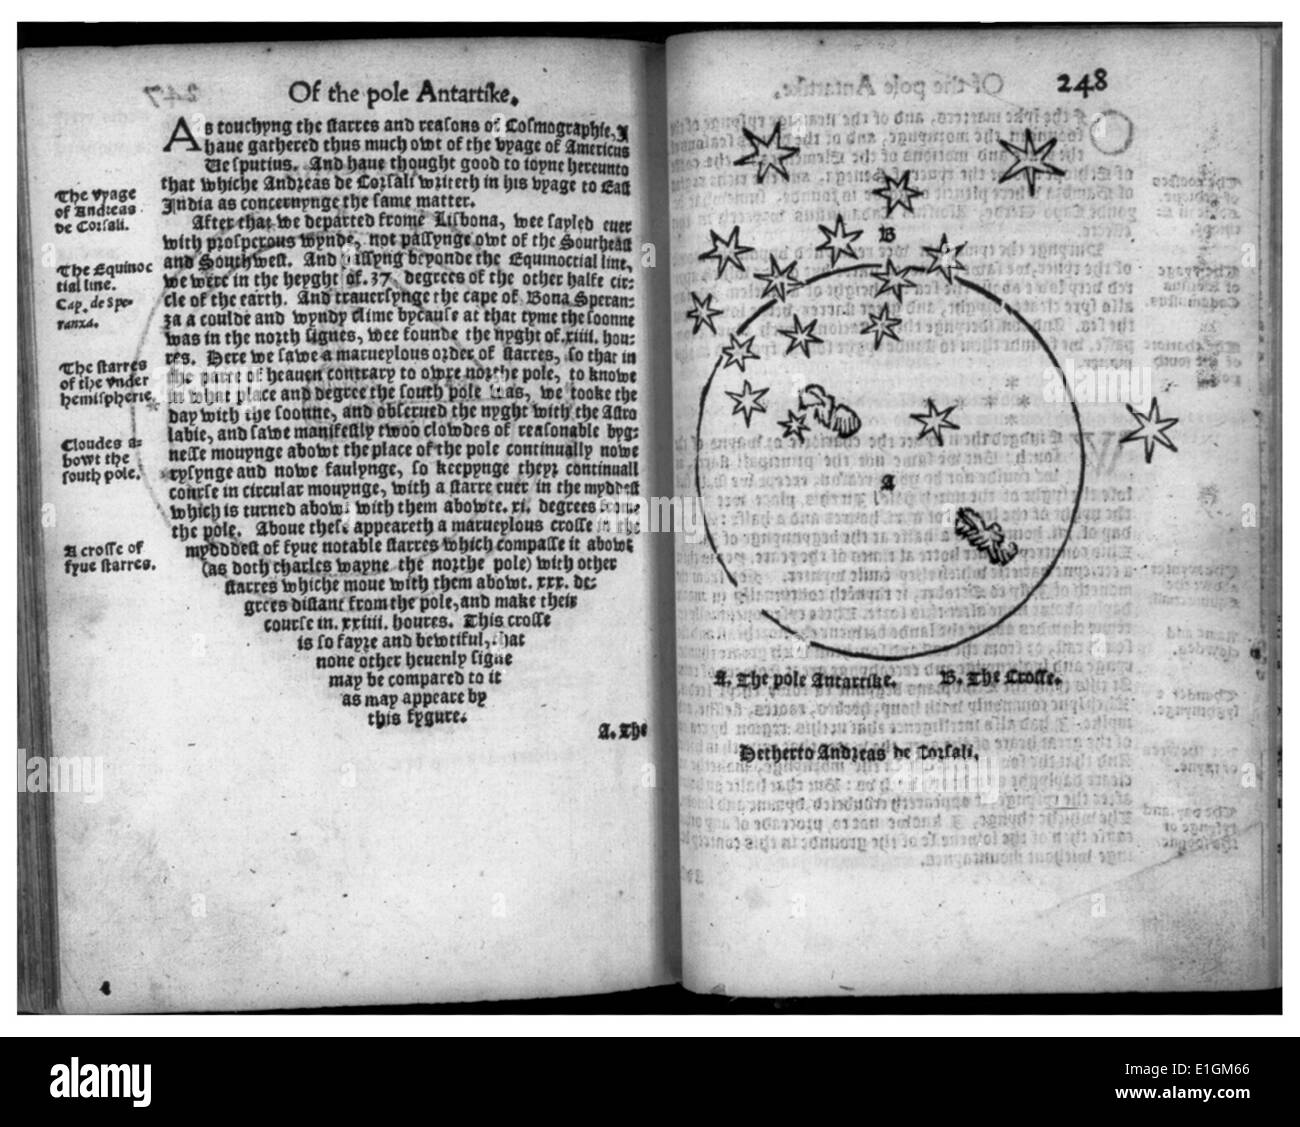 Of the pole Antartike.
As touchyng the starres and reasons of Cosmographie, I
haue gathered thus much owt of the vyage of Americus
Vesputius. And haue thought good to ioyne hereunto
that whiche Andreas de Corsali writeth in his vyage to East
India as concernynge the same matter.
The vyage
of Andreas
de Corsali.
After that we departed frome Lisbona, wee sayled euer
with prosperous wynde, not passynge owt of the Southeast
and Southwest. And passyng beyonde the Equinoctial line,
we were in the heyght of. 37. degrees of the other halfe cir-
cle of the earth. And trauersynge the cape of Bona Speran-
za a coulde and wyndy clime bycause at that tyme the soonne
was in the north signes, wee founde the nyght of.xiiii. hou-
res. Here we sawe a marueylous order of starres, so that in
the parte of heauen contrary to owre northe pole, to knowe
in what place and degree the south pole was, we tooke the
day with the soonne, and obserued the nyght with the Astro
labie, and sawe manifestly twoo clowdes of reasonable byg-
nesse mouynge abowt the place of the pole continually nowe
rysynge and nowe faulynge, so keepynge theyr continuall
course in circular mouynge, with a starre euer in the myddest
which is turned abowt with them abowte. xi. degrees frome
the pole. Aboue these appeareth a marueylous crosse in the
myddest of fyue notable starres which compasse it abowt
(as doth charles wayne the northe pole) with other
starres whiche moue with them abowt. xxx. de-
grees distant from the pole, and make their
course in. xxiiii. houres. This crosse
is so fayre and bewtiful, that
none other heuenly signe
may be compared to it
as may appeare by
this fygure.
The Equinoc
tial line.
Cap. de Spe-
ranza.
The starres
of the vnder
hemispherie.
Cloudes a-
bowt the
south pole.
A crosse of
fyue starres.
A. The
248
B
A
A. The pole Antartike. B. The Crosse.
Hetherto Andreas de Corsali.
alamy
alamy
Image ID: E1GM66
www.alamy.com